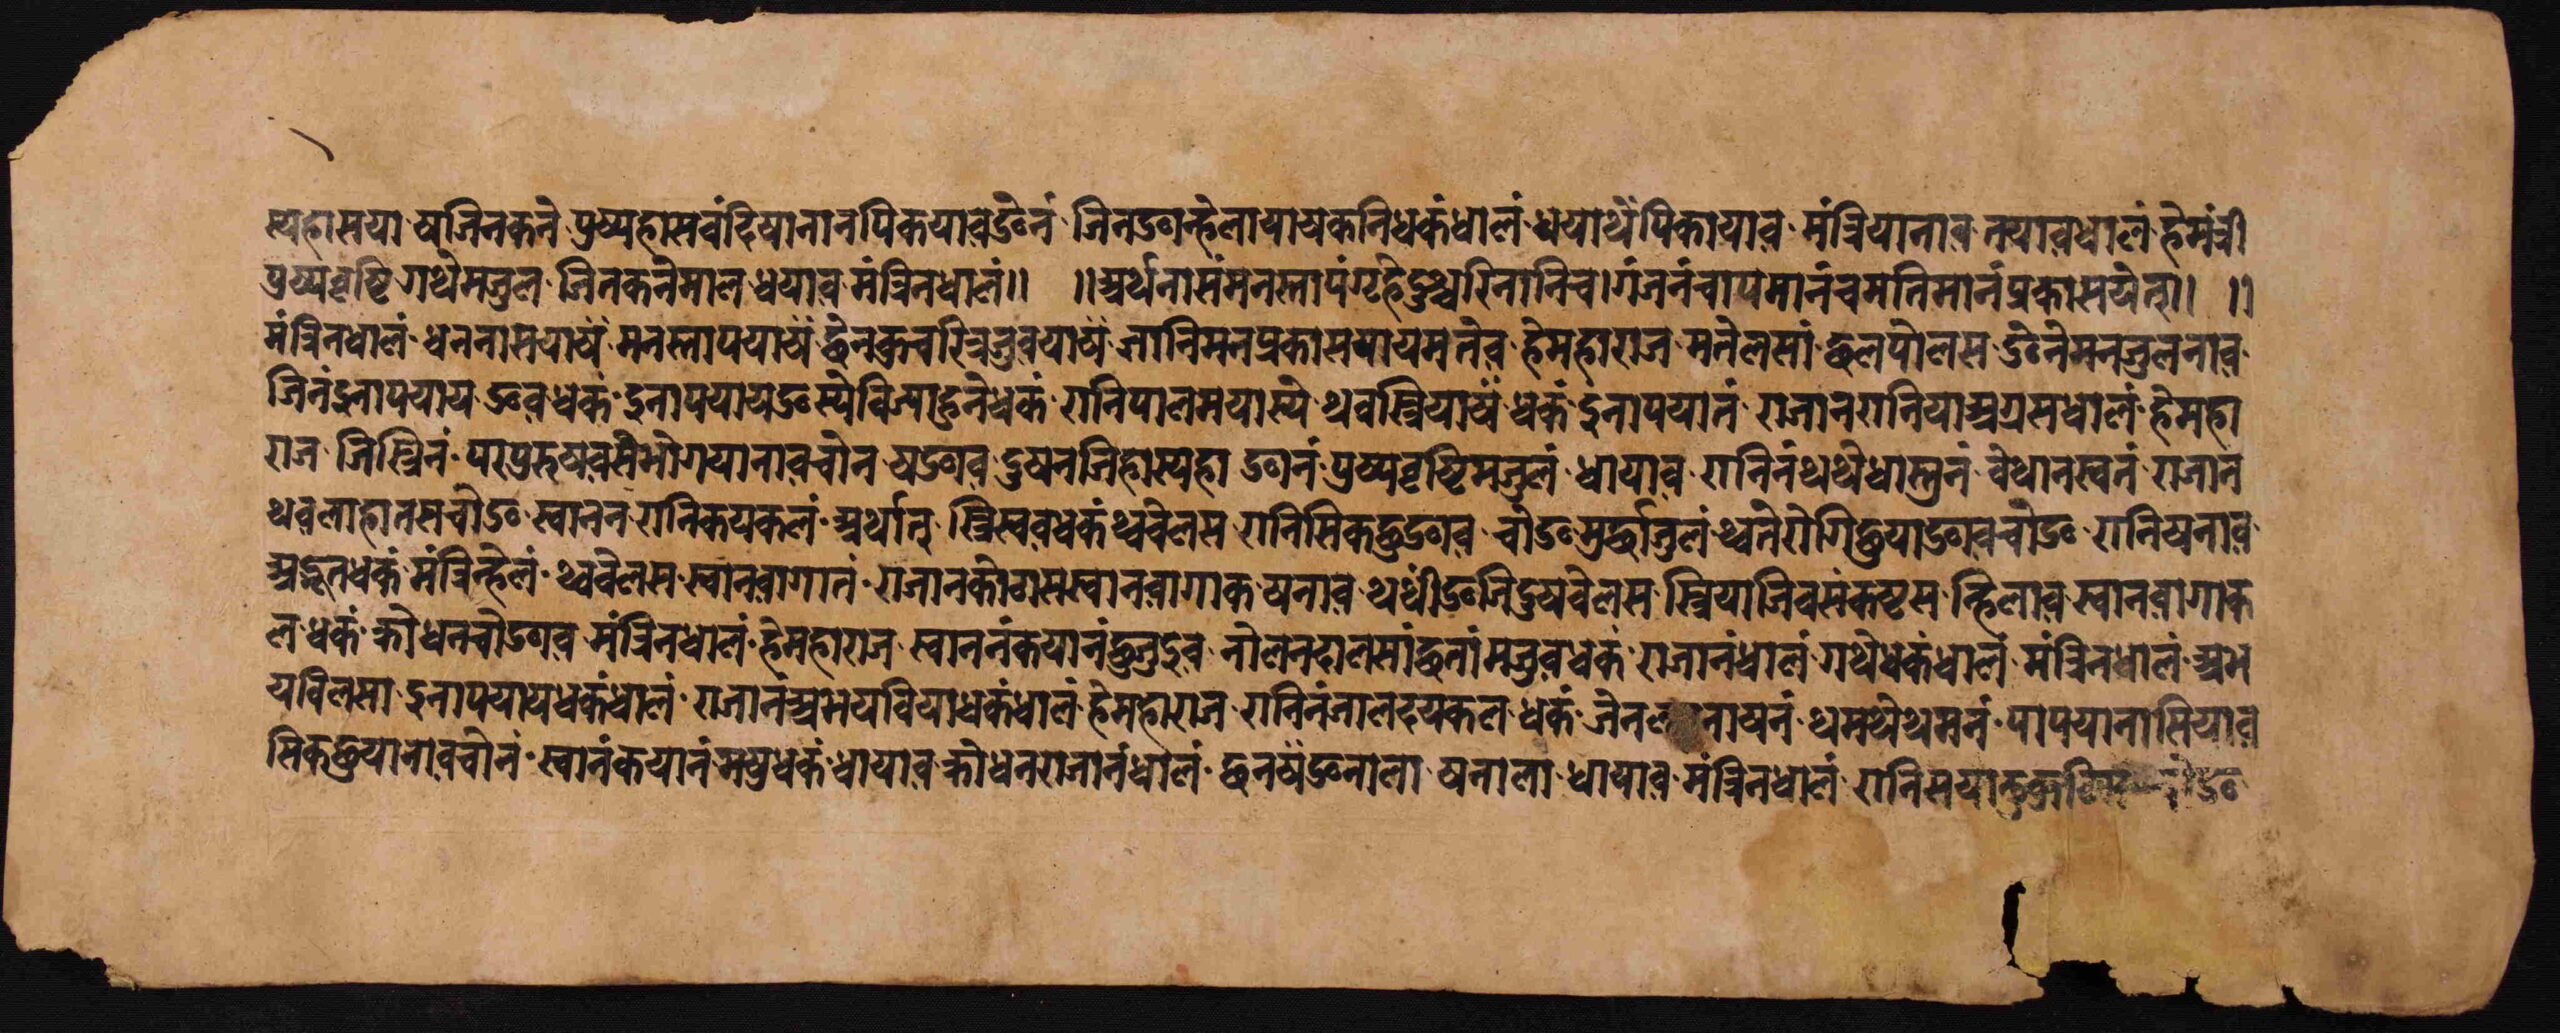 स्यहासया षजिनकने पुष्यहासवंदिषानानपिकयावङेनं जिनङान्हेलायायकनिधकंधालं धयाथेंपिकायाव मंत्रियानाव नयावधालं हेमंत्री
पुष्पवृष्टि गथेमजुल जिनकनेमाल धयाव मंत्रिनधालं॥ ॥अर्थनासंमनस्तापंगृहेदुश्चरितानिच।गंजनंचापमानंचमतिमानंप्रकासयेत्॥ ॥
मंत्रिनधालं धननासयायँ मनस्तापयायँ छेनकुचरित्रजुवयायँ ज्ञानिमनप्रकासयायमतेव हेमहाराज मतेलसां छलपोलस ङेनेमनजुलनाव
जिनंइनापयाय ङेवधकं इनापयायङेस्ये विज्याहुनेधकं रानिपालमयास्ये थवस्त्रियायँ धकं इनापयातं राजानरानियाअग्रसधालं हेमहा
राज जिस्त्रिनं परपुरुषवसंभोगयानावचोन षङाव दुषनजिहास्यहा ङानं पुष्पवृष्टिमजुलं धायाव रानिनंथथेधास्तुनं वेथानस्वनं राजान
थवलाहातसचोङ स्वानन रानिकयकलं अर्थात् स्त्रिस्ववधकं थ्ववेलस रानिसिकछुङाव चोङ मुर्छाजुलं थ्वतेरोगिछुयाङावचोङ रानिषनाव
अद्भुतधकं मंत्रिन्हेलं थ्ववेलस स्वानवागातं राजानकोठासस्वानवागाक षनाव थथींङजिदुषवेलस स्त्रियाजिवसंकष्टस न्हिलाव स्वानवागाक
ल धकं क्रोधनचोङाव मंत्रिनधालं हेमहाराज स्वाननंकयानंछुजुइव नोलनदालसांछुतांमजुवधकं राजानंधालं गथेधकंधालं मंत्रिनधालं अभ
यविलसा इनापयायधकंधालं राजानंअभयवियाधकंधालं हेमहाराज रानिनंजालहयकल धकं नायनं थमथेथमनं पापयानासियाव
सिकछुयानोवचोनं स्वानंकयानंमषुधकं धायाव क्रोधनराजानंधालं छनषँङनाला षनाला धायाव मंत्रिनधालं रानिसया